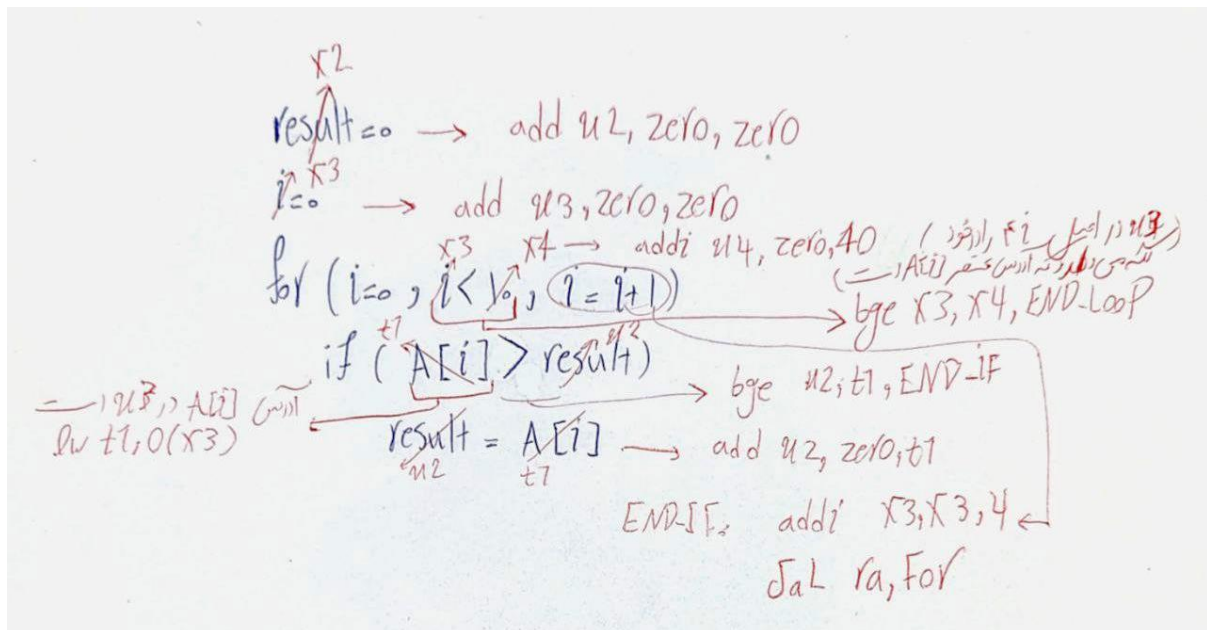 x2
result=0 → add x2, zero, zero
x3
i=0 → add x3, zero, zero
x3 x4 → addi x4, zero, 40 (x3 در اصل 4i را در خود
for (i=0, i<10, i=i+1) نگه می دارد که آدرس عنصر A[i] است)
bge x3, x4, END-LOOP
t1 x2
if (A[i] > result)
bge x2, t1, END-IF
آدرس A[i] در x3 است
lw t1, 0(x3)
result = A[i] → add x2, zero, t1
x2 t1
END-IF: addi x3, x3, 4
Jal ra, For